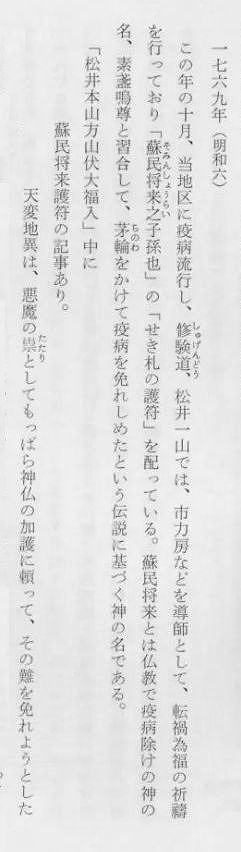 一七六九年（明和六）
この年の十月、当地区に疫病流行し、修験道、松井一山では、市力房などを導師として、転禍為福の祈禱
を行っており「蘇民将来之子孫也」の「せき札の護符」を配っている。蘇民将来とは仏教で疫病除けの神の
名、素盞嗚尊と習合して、茅輪をかけて疫病を免れしめたという伝説に基づく神の名である。
「松井本山方山伏大福入」中に
蘇民将来護符の記事あり。
天変地異は、悪魔の祟としてもっぱら神仏の加護に頼って、その難を免れようとした